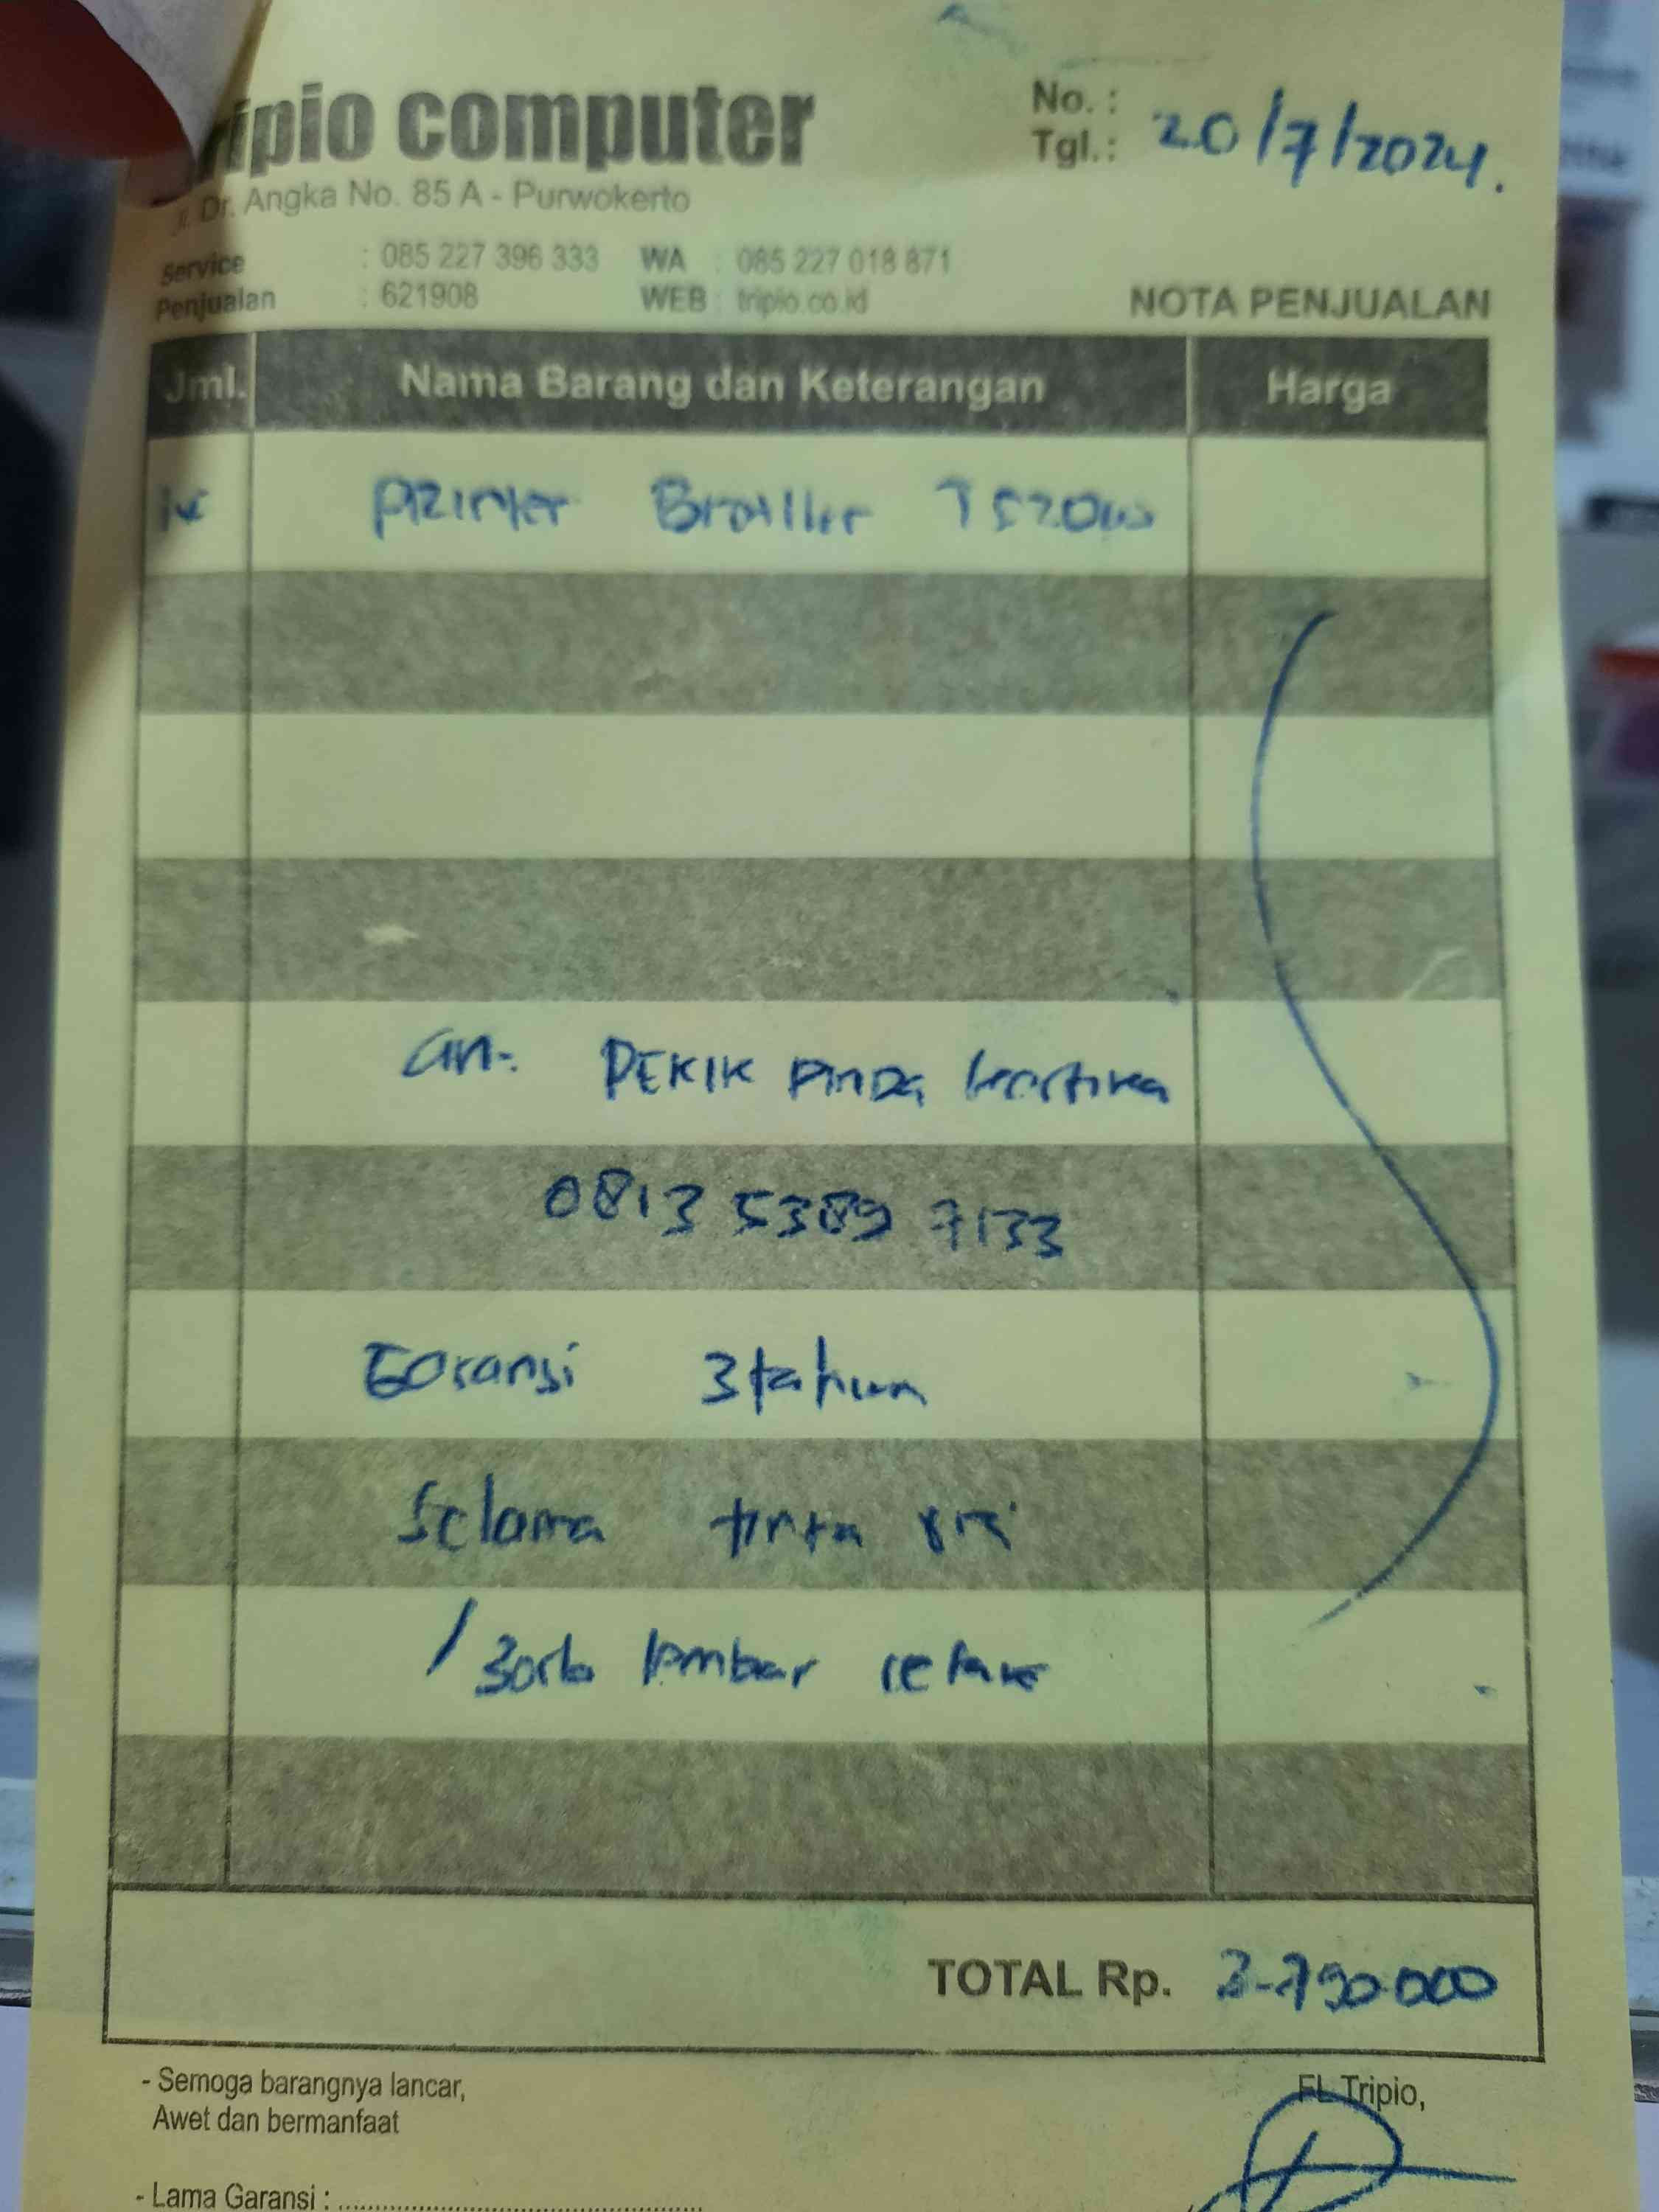 ripio computer
No. :
Tgl.: 20/7/2024.
Jl. Dr. Angka No. 85 A - Purwokerto
Service : 085 227 396 333 WA : 085 227 018 871
Penjualan : 621908 WEB : tripio.co.id
NOTA PENJUALAN
Jml. Nama Barang dan Keterangan Harga
Printer
an. PEKIK
0813 5389 7133
Garansi 3 tahun
Selama tinta
/ lembar
TOTAL Rp. 3.790.000
- Semoga barangnya lancar,
Awet dan bermanfaat
FL Tripio,
- Lama Garansi :